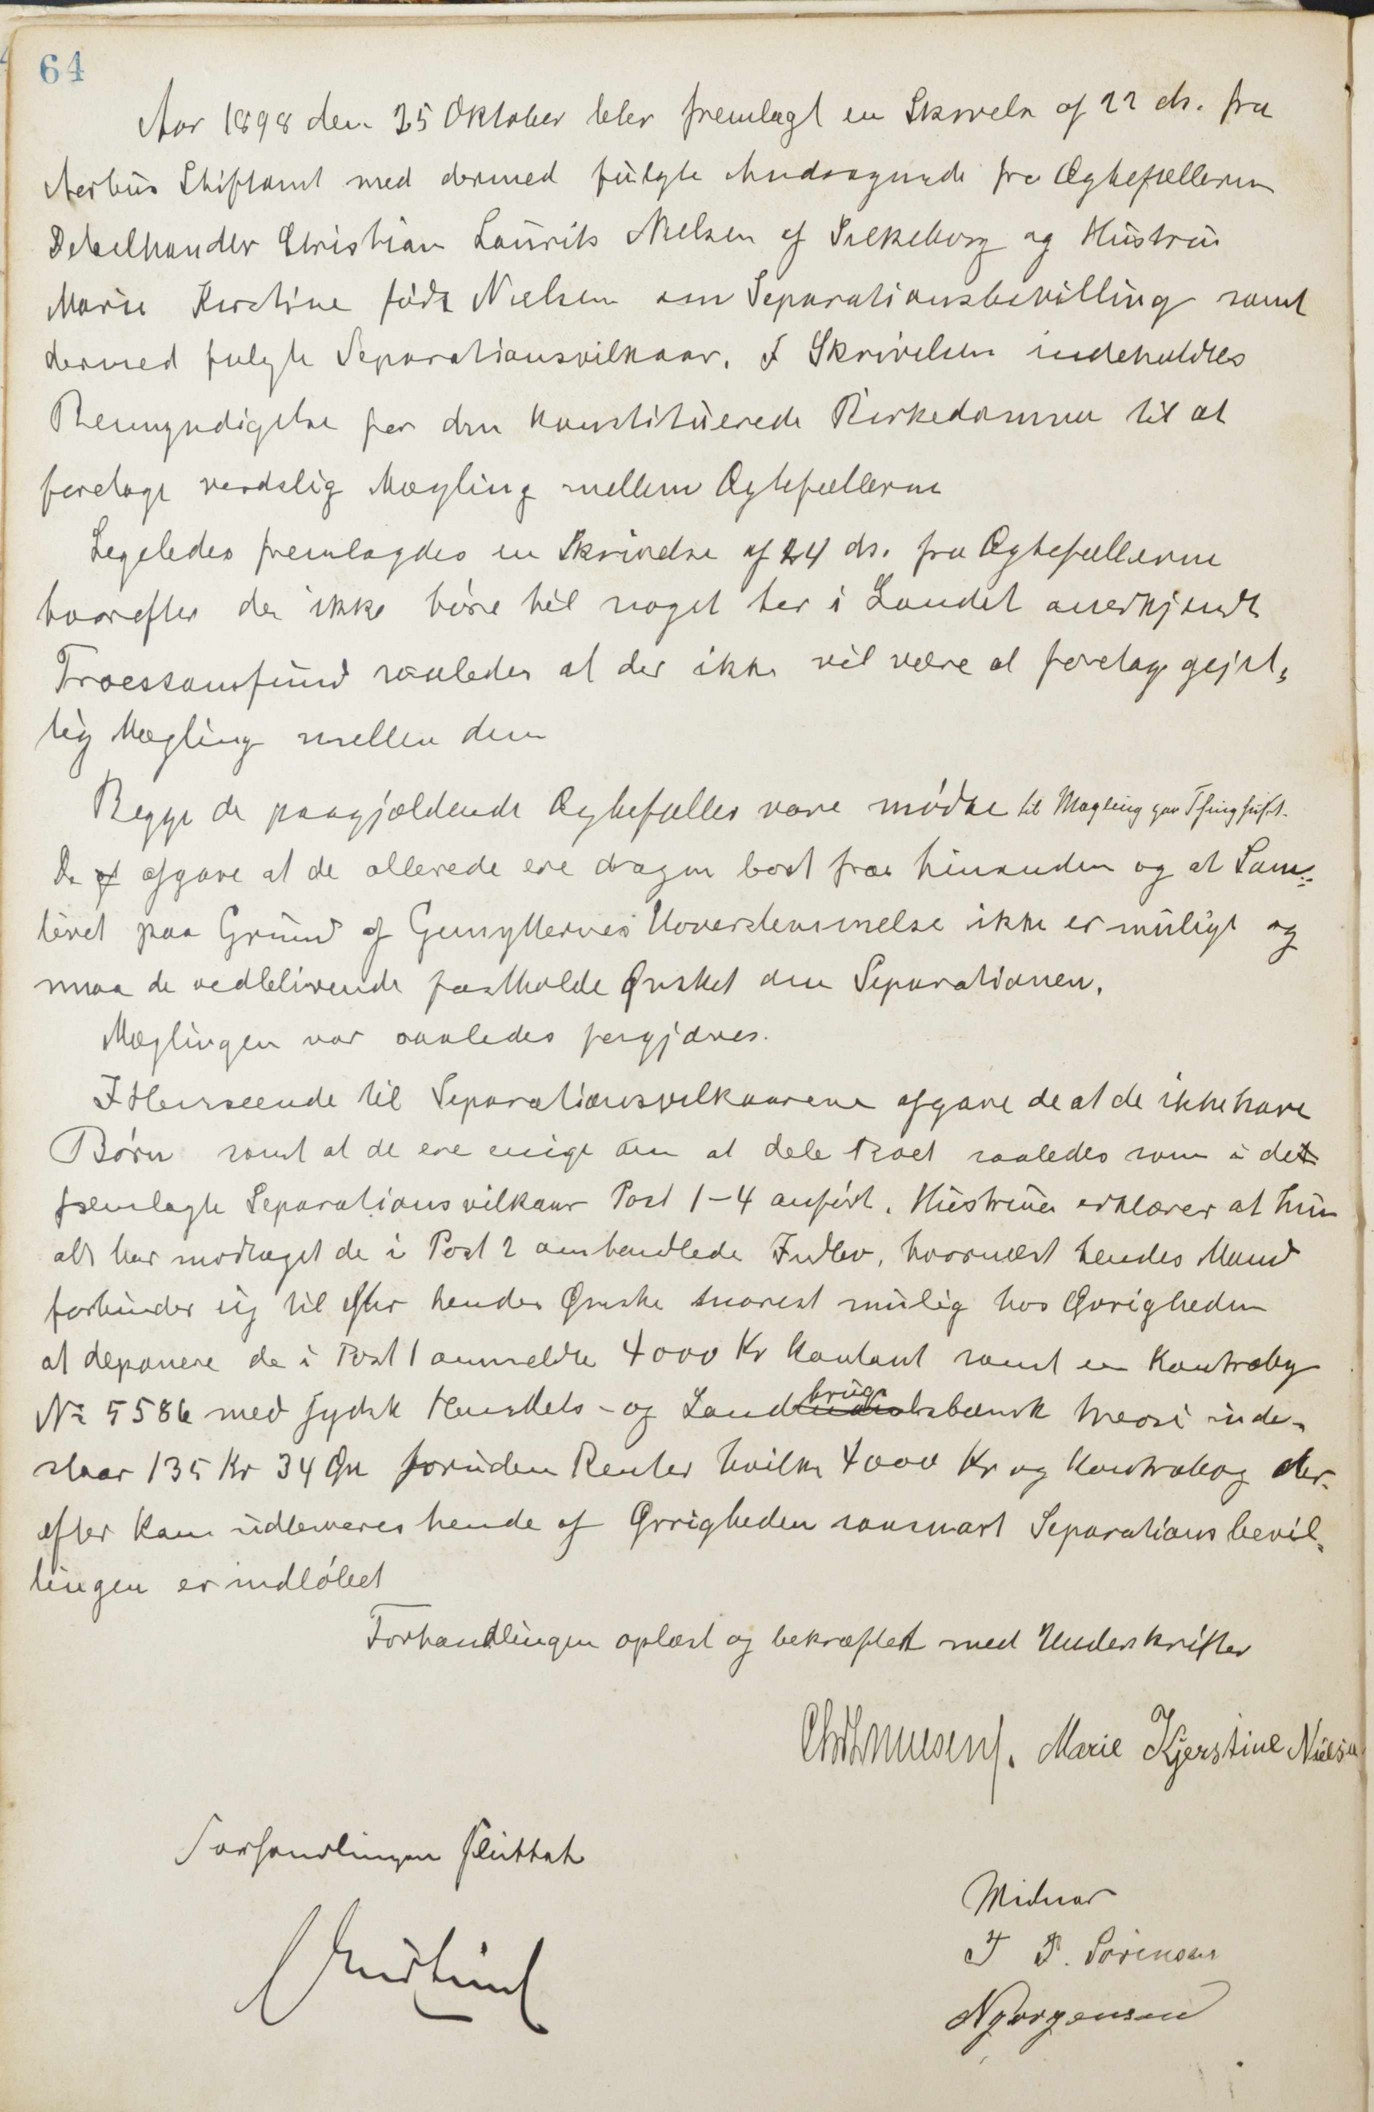 64
Aar 1898 den 25 Oktober blev fremlagt en Skrivelse af 22 ds. fra
Aarhus Stiftamt med dermed fulgte Andragende fra Ægtefællerne
Detailhandler Christian Laurits Nielsen af Silkeborg og Hustru
Marie Kirstine født Nielsen om Separationsbevilling samt
dermed fulgte Separationsvilkaar. I Skrivelsen indeholdtes
Bemyndigelse for den konstituerede Birkedommer til at
foretage verdslig Mægling mellem Ægtefællerne
Ligeledes fremlagdes en Skrivelse af 24 ds. fra Ægtefællerne
hvorefter de ikke høre til noget her i Landet anerkjendt
Troessamfund saaledes at der ikke vil være at foretage gejst„
lig Mægling mellem dem
Begge de paagjældende Ægtefæller vare mødte til Mægling
De afgave at de allerede ere dragne bort fra hinanden og at Sam„
livet paa Grund af Gemytternes Uoverstemmelse ikke er muligt og
maa de vedblivende fastholde Ønsket om Separationen.
Mæglingen var saaledes forgjæves.
I Henseende til Separationsvilkaarene afgave de at de ikke have
Børn samt at de ere enige om at dele Boet saaledes som i det
fremlagte Separationsvilkaar Post 1-4 anført. Hustruen erklærer at hun
alt har modtaget de i Post 2 omhandlede Indbo, hvornæst hendes Mand
forbinder sig til efter hendes Ønske snarest mulig hos Øvrigheden
at deponere de i Post 1 ommeldte 4000 Kr kontant samt en Kontrabog
No 5586 med Jydsk Handels- og Landbrugsbank hvori inde„
staar 135 Kr 34 Øre foruden Renter hvilke 4000 Kr og Kontrabog der„
efter kan udleveres hende af Øvrigheden saasnart Separationsbevil„
lingen er indløbet
Forhandlingen oplæst og bekræftet med Underskrifter
Marie Kjerstine Nielsen
Forhandlingen sluttet
Vidner
J P. Sørensen
N Jørgensen